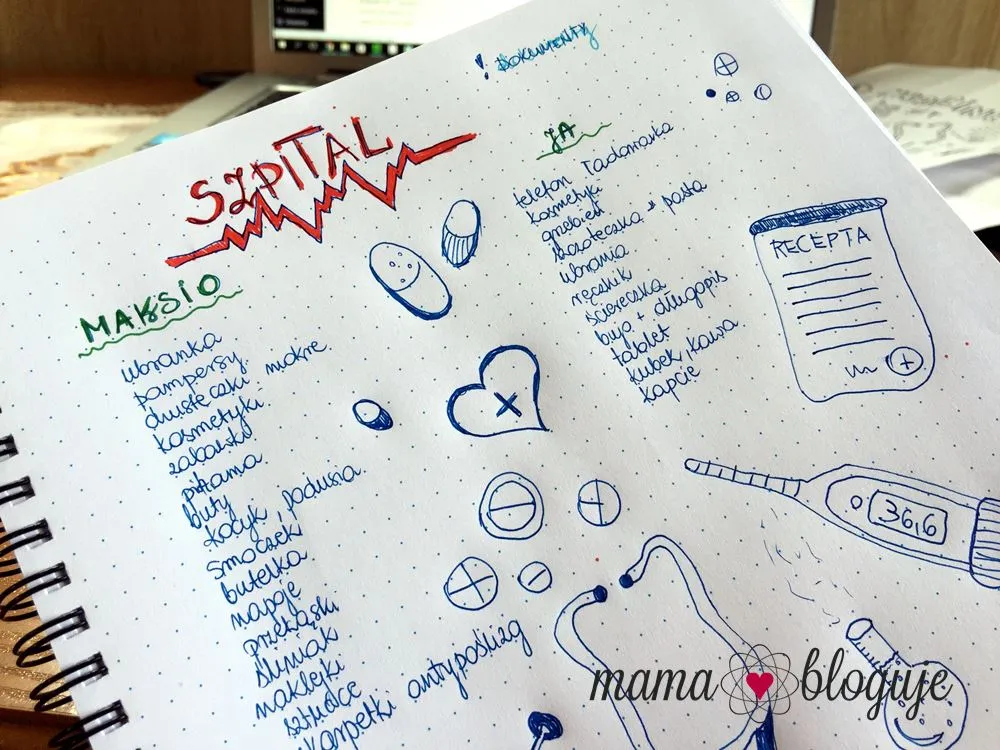 ! DOKUMENTY
SZPITAL
MAKSIO
ubranka
pampersy
chusteczki mokre
kosmetyki
zabawki
piżama
buty
kocyk, podusia
smoczek
butelka
napoje
przekąski
śliniak
naklejki
sztućce
skarpetki antypoślizg
JA
telefon ładowarka
kosmetyki
grzebień
szczoteczka + pasta
ubrania
ręcznik
ściereczka
bujo + długopis
tablet
kubek, kawa
kapcie
RECEPTA
36,6
mama bloguje